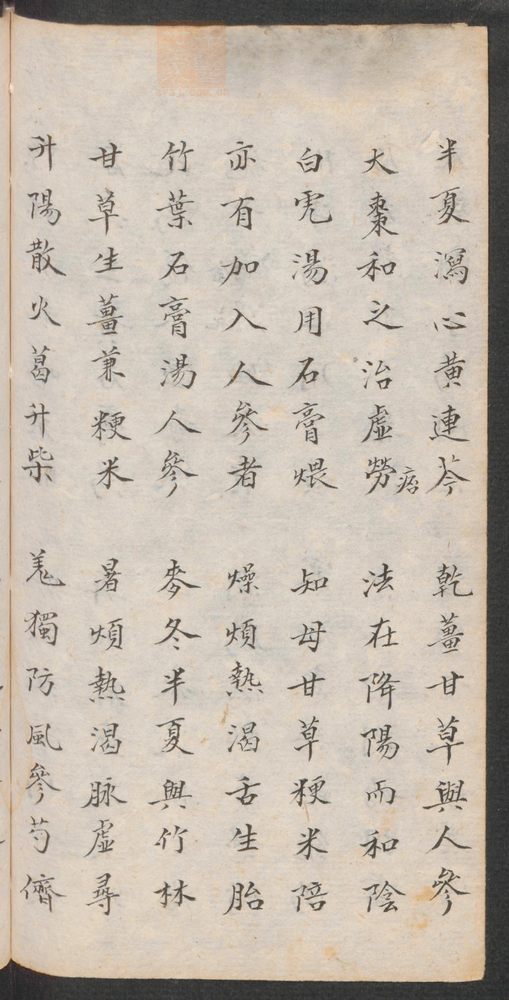 半夏瀉心黄連芩 乾薑甘草與人參
大棗和之治虛勞痞 法在降陽而和陰
白虎湯用石膏煨 知母甘草粳米陪
亦有加入人參者 燥煩熱渴舌生胎
竹葉石膏湯人參 麥冬半夏與竹林
甘草生薑兼粳米 暑煩熱渴脉虛尋
升陽散火葛升柴 羌獨防風參芍儕